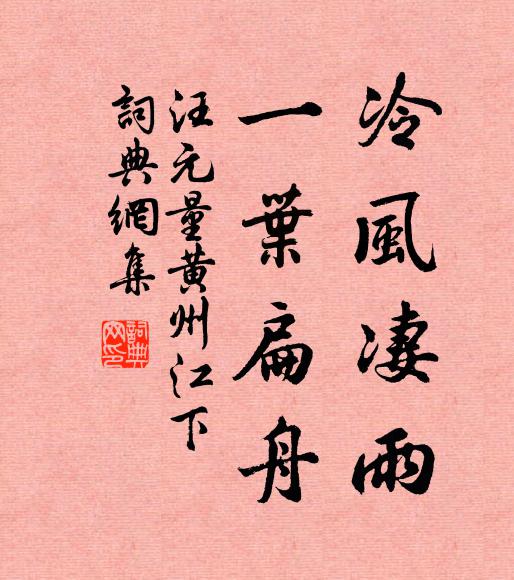 冷風淒雨
一葉扁舟
汪元量黄州江下
詞典網集
詞典網印